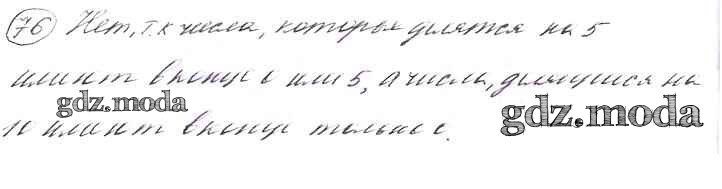 76 Нет, т.к числа, которые делятся на 5
имеют в конце 0 или 5, а числа, делящиеся на
gdz.moda
gdz.moda
10 имеют в конце только 0.